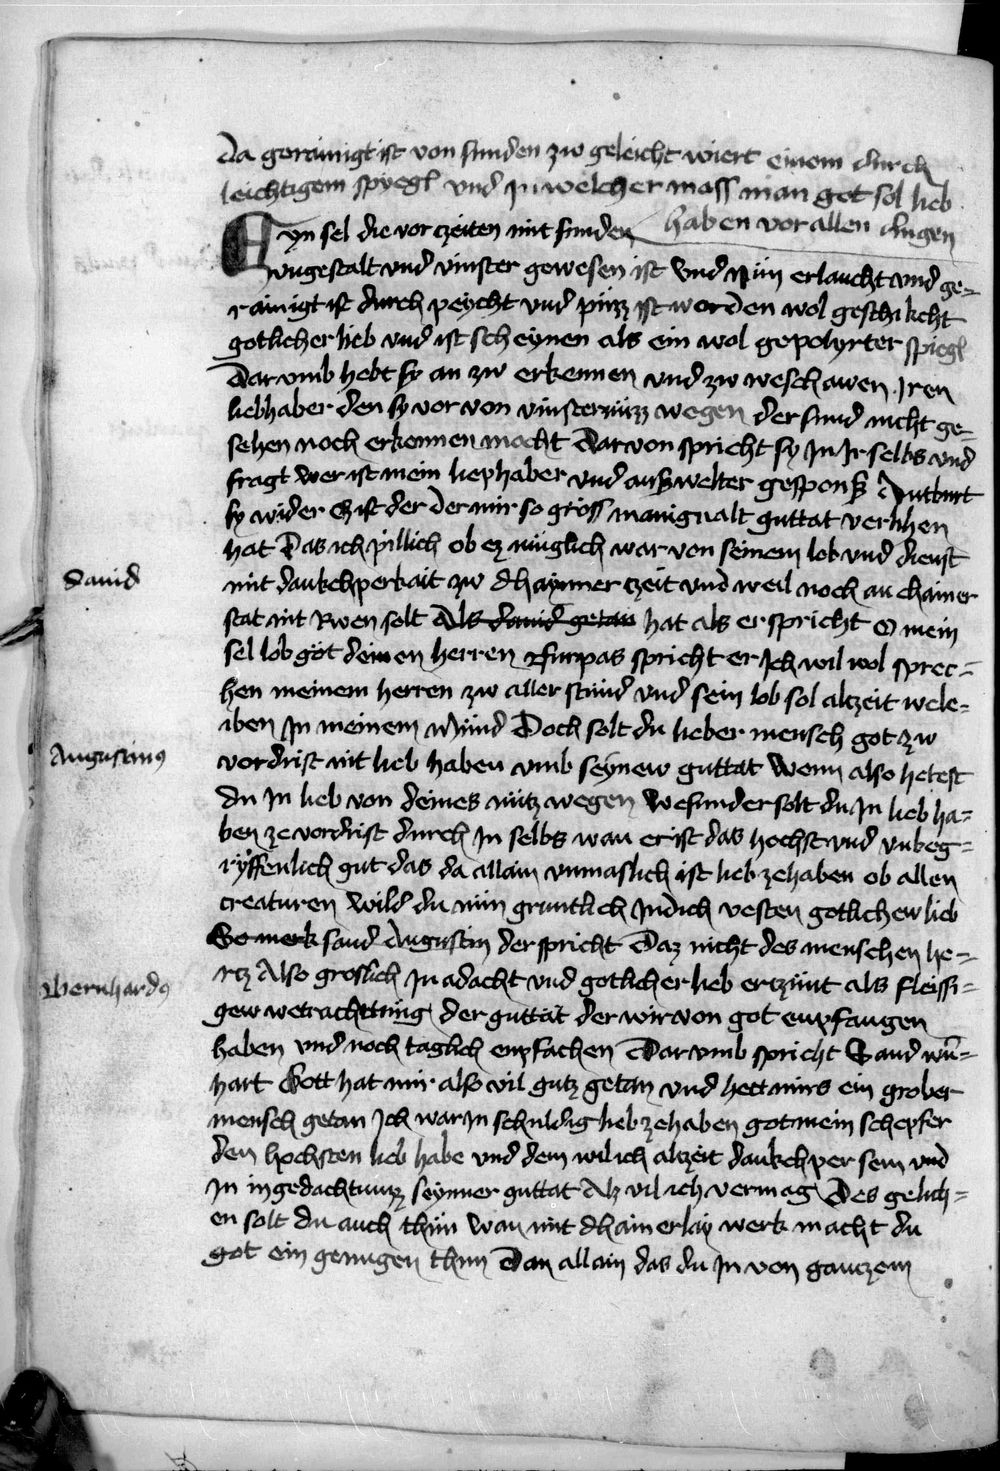 da gerainigt ist von sunden zw geleicht wiert einem durch
leichtigem spyegl vnd in welcher mass man got sol lieb
haben vor allen dingen
Eyn sel die vor czeiten mit sunden
vngestalt vnd vinster gewesen ist vnd nün erlaucht vnd ge-
rainigt ist durch peycht vnd püzz ist worden wol geschikcht
gotlicher lieb vnd ist scheynen als ein wol gepolyrter spiegl
Dar vmb hebt sy an zw erkennen vnd zw weschawen Iren
liebhaber den sy vor von vinsternüzz wegen der sund nicht ge-
sehen noch erkennen mocht Dar von spricht sy In Ir selbs vnd
fragt wer ist mein liephaber vnd außwelter gesponß Antburt
sy wider Er ist der der mir so gross manigualt guttat verlihen
hat Das ich pillich ob ez müglich war von seinem lob vnd dienst
Dauid
mit dankchperkait zw dhayner czeit vnd weil noch an chainer
stat nit Rwen solt Als dauid getan hat als er spricht O mein
sel lob got deinen herren Furpas spricht er Ich wil wol sprec-
hen meinem herren zw aller stund vnd sein lob sol alczeit wele-
iben In meinem mund Doch solt du lieber mensch got zw
Augustinus
vordrist nit lieb haben vmb seynew guttat Wenn also hetest
du In lieb von deines nütz wegen Wesunder solt du In lieb ha-
ben ze vordrist durch In selbs wan er ist das hochst vnd vnbeg-
ryffenlich gut das da allain vnmaslich ist lieb ze haben ob allen
creaturen Wild du nün gruntlich In dich vesten gotlichew lieb
So merk sand Augustin der spricht Daz nicht des menschen he-
Bernhardus
rcz Also groslich In adacht vnd gotlicher lieb erczünt als fleissi-
gew wetrachttung der guttat der wir von got enpfangen
haben vnd noch taglich enpfachen Dar vmb spricht Sand wern-
hart Gott hat mir also vil gutz getan vnd hett mirs ein grober
mensch getan Ich war In schuldig lieb ze haben got mein schepfer
den hochsten lieb habe vnd dem wil ich alczeit dankchper sein vnd
In ingedachtnuzz seynner guttat Alz vil ich vermag Des gelich-
en solt du auch thun Wan mit dhainerlay werk macht du
got ein genugen thun Dan allain das du In von ganczem